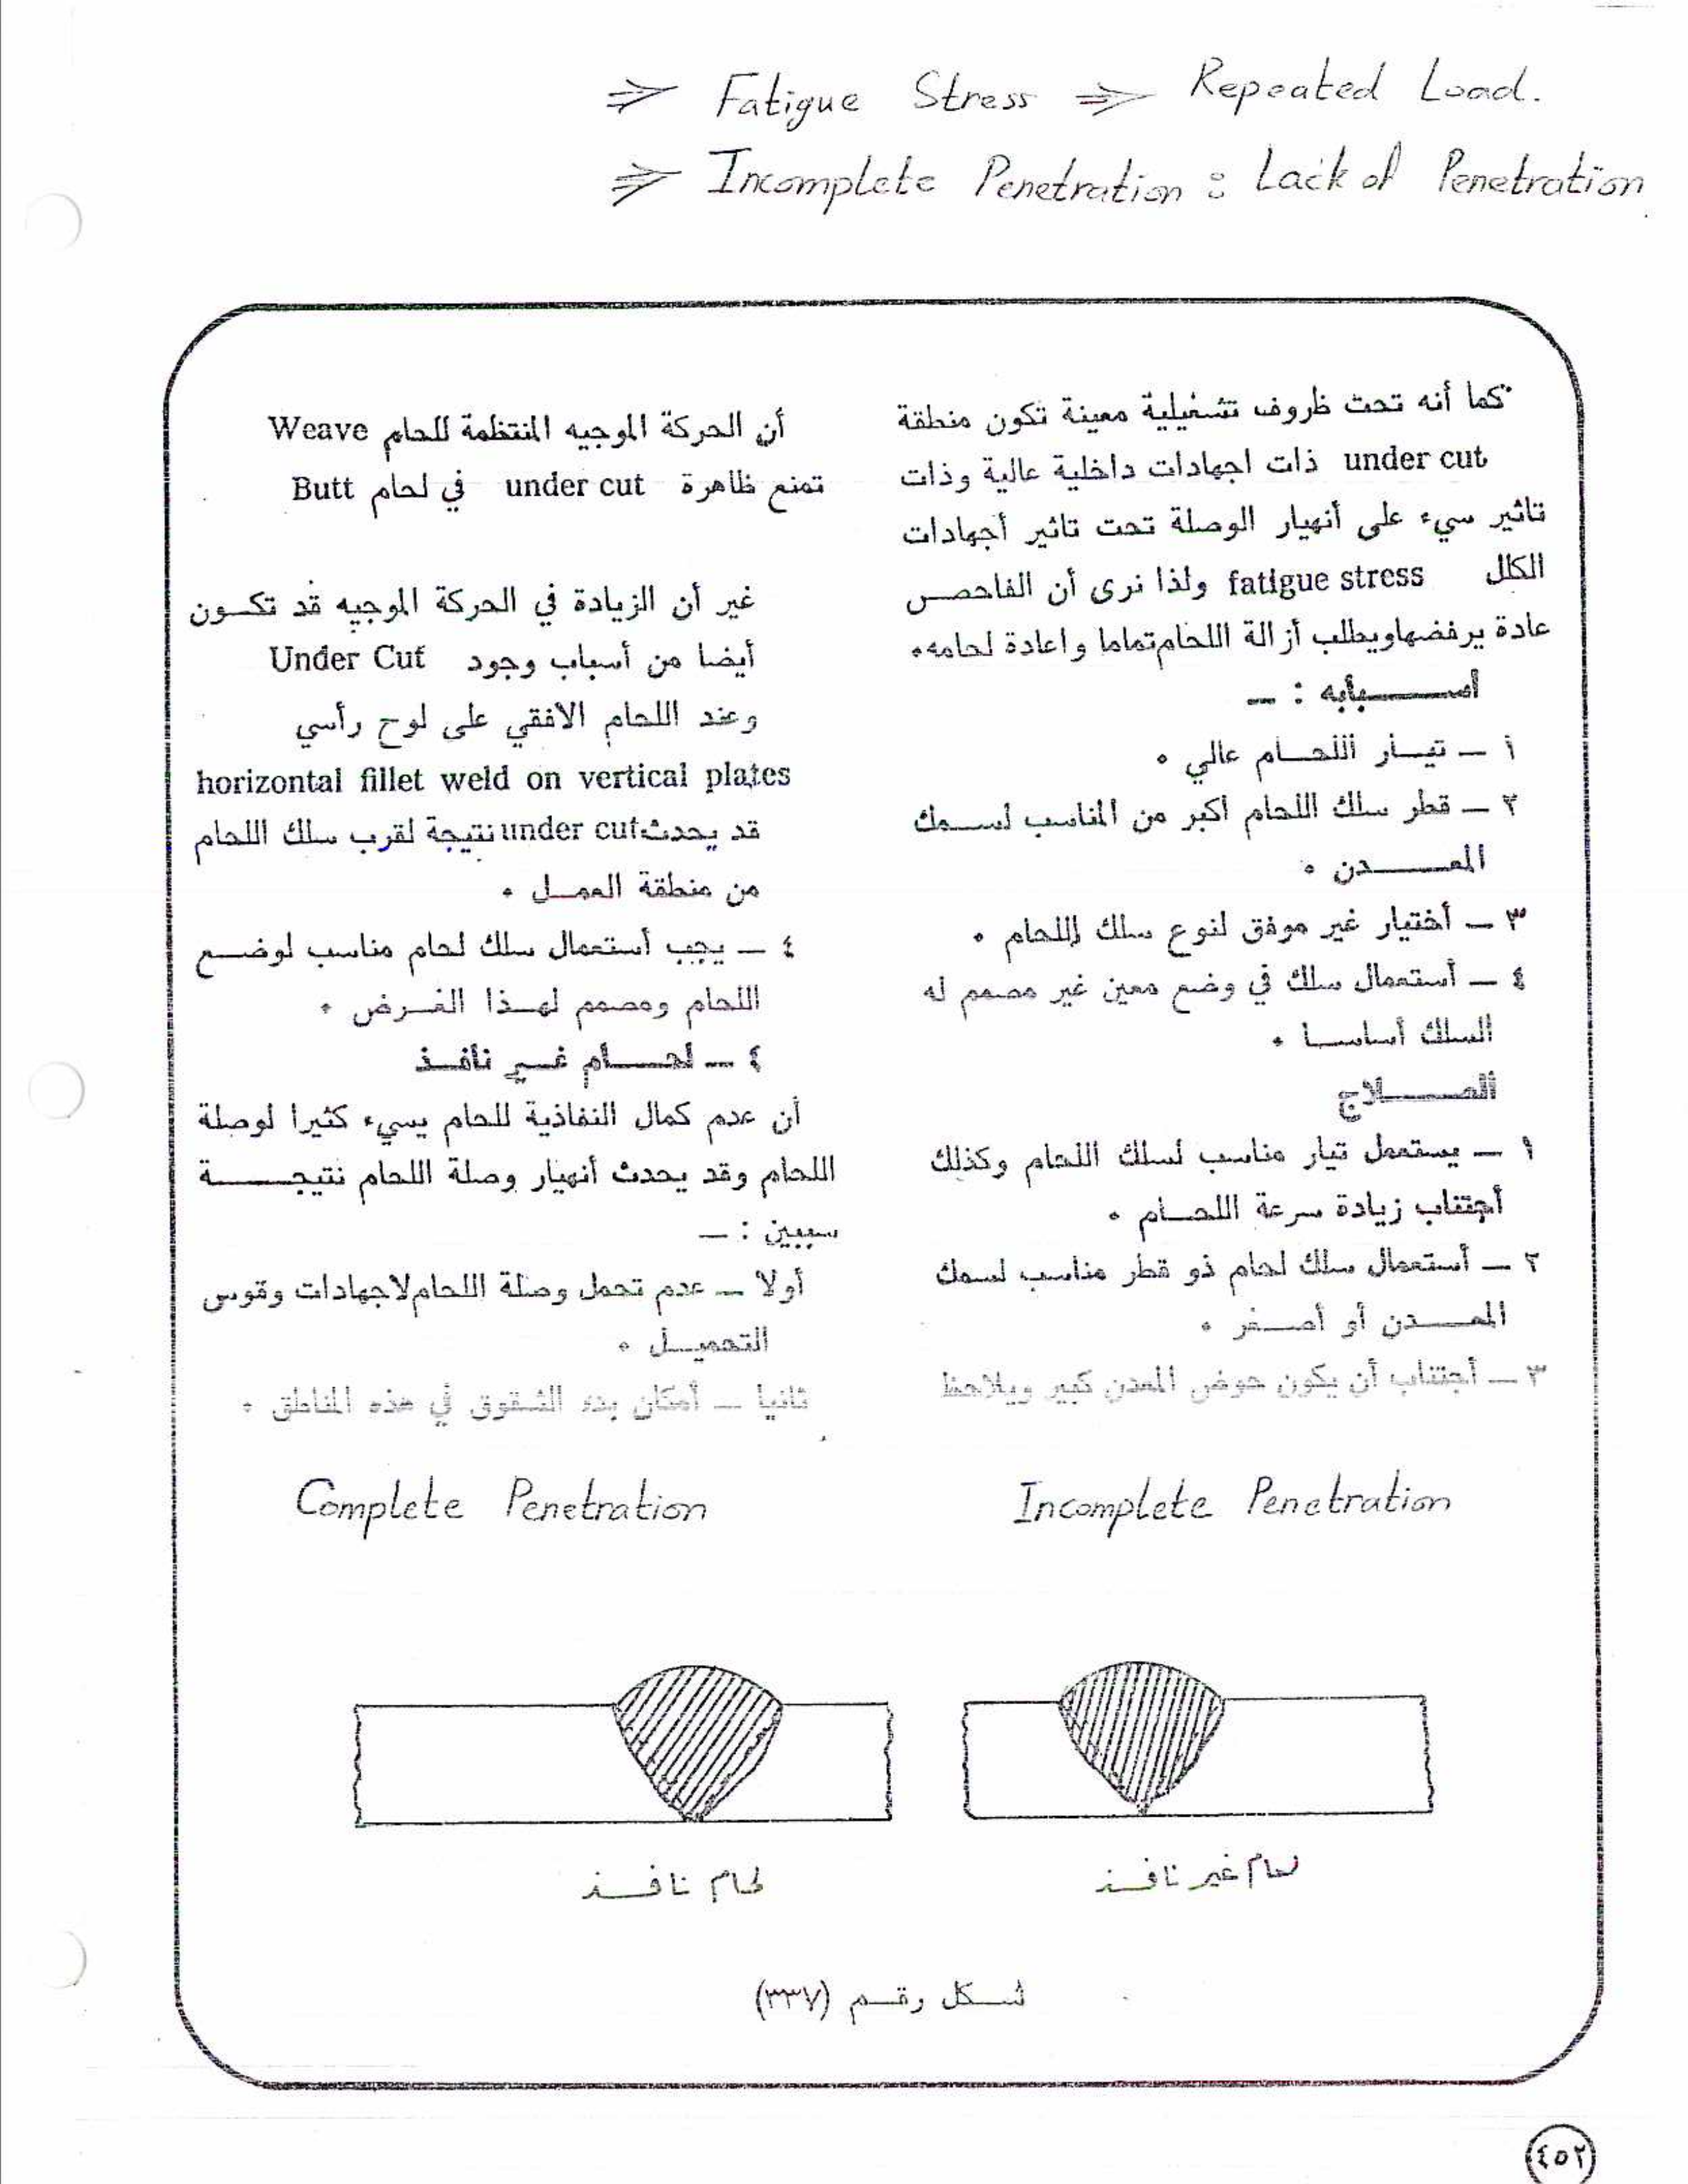 ⇒ Fatigue Stress ⇒ Repeated Load.
⇒ Incomplete Penetration : Lack of Penetration
كما أنه تحت ظروف تشغيلية معينة تكون منطقة
under cut ذات اجهادات داخلية عالية وذات
تاثير سيء على أنهيار الوصلة تحت تاثير أجهادات
الكلل fatigue stress ولذا نرى أن الفاحص
عادة يرفضها ويطلب أزالة اللحام تماما واعادة لحامه.
أســـبابه : ـ
١ ـ تيـار اللحـام عالي .
٢ ـ قطر سلك اللحام اكبر من المناسب لسـمك
المعــدن .
٣ ـ أختيار غير موفق لنوع سلك اللحام .
٤ ـ أستعمال سلك في وضع معين غير مصمم له
السلك أساسـا .
العـــلاج
١ ـ يستعمل تيار مناسب لسلك اللحام وكذلك
أجتناب زيادة سرعة اللحـام .
٢ ـ أستعمال سلك لحام ذو قطر مناسب لسمك
المعـــدن أو أصـغر .
٣ ـ أجتناب أن يكون حوض المعدن كبير ويلاحظ
أن الحركة الموجيه المنتظمة للحام Weave
تمنع ظاهرة under cut في لحام Butt
غير أن الزيادة في الحركة الموجيه قد تكـون
أيضا من أسباب وجود Under Cut
وعند اللحام الافقي على لوح رأسي
horizontal fillet weld on vertical plates
قد يحدث under cut نتيجة لقرب سلك اللحام
من منطقة العمـل .
٤ ـ يجب أستعمال سلك لحام مناسب لوضـع
اللحام ومصمم لهـذا الغـرض .
٤ ـ لحـــام غـير نافـذ
أن عدم كمال النفاذية للحام يسيء كثيرا لوصلة
اللحام وقد يحدث أنهيار وصلة اللحام نتيجـــة
سببين : ـ
أولا ـ عدم تحمل وصلة اللحام لاجهادات وقوى
التحميـل .
ثانيا ـ أمكان بدء الشـقوق في هذه المناطق .
Incomplete Penetration
Complete Penetration
لحام غير نافـذ
لحام نافـذ
شـكل رقـم (٣٣٧)
٤٥٢